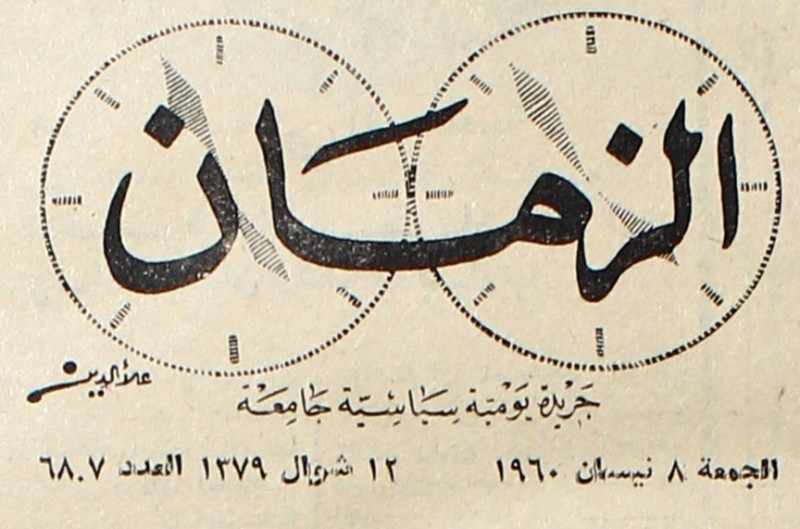 الزمان
علاء الدين
جَرِيْدَة يَوْمِيَّة سِيَاسِيَّة جَامِعَة
الجمعة ٨ نيسان ١٩٦٠ ١٢ شوال ١٣٧٩ العدد ٦٨٠٧